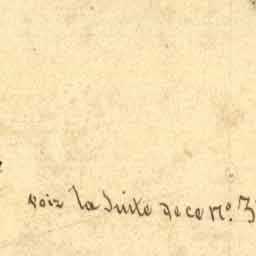 voir la Suite de ce n.º 3